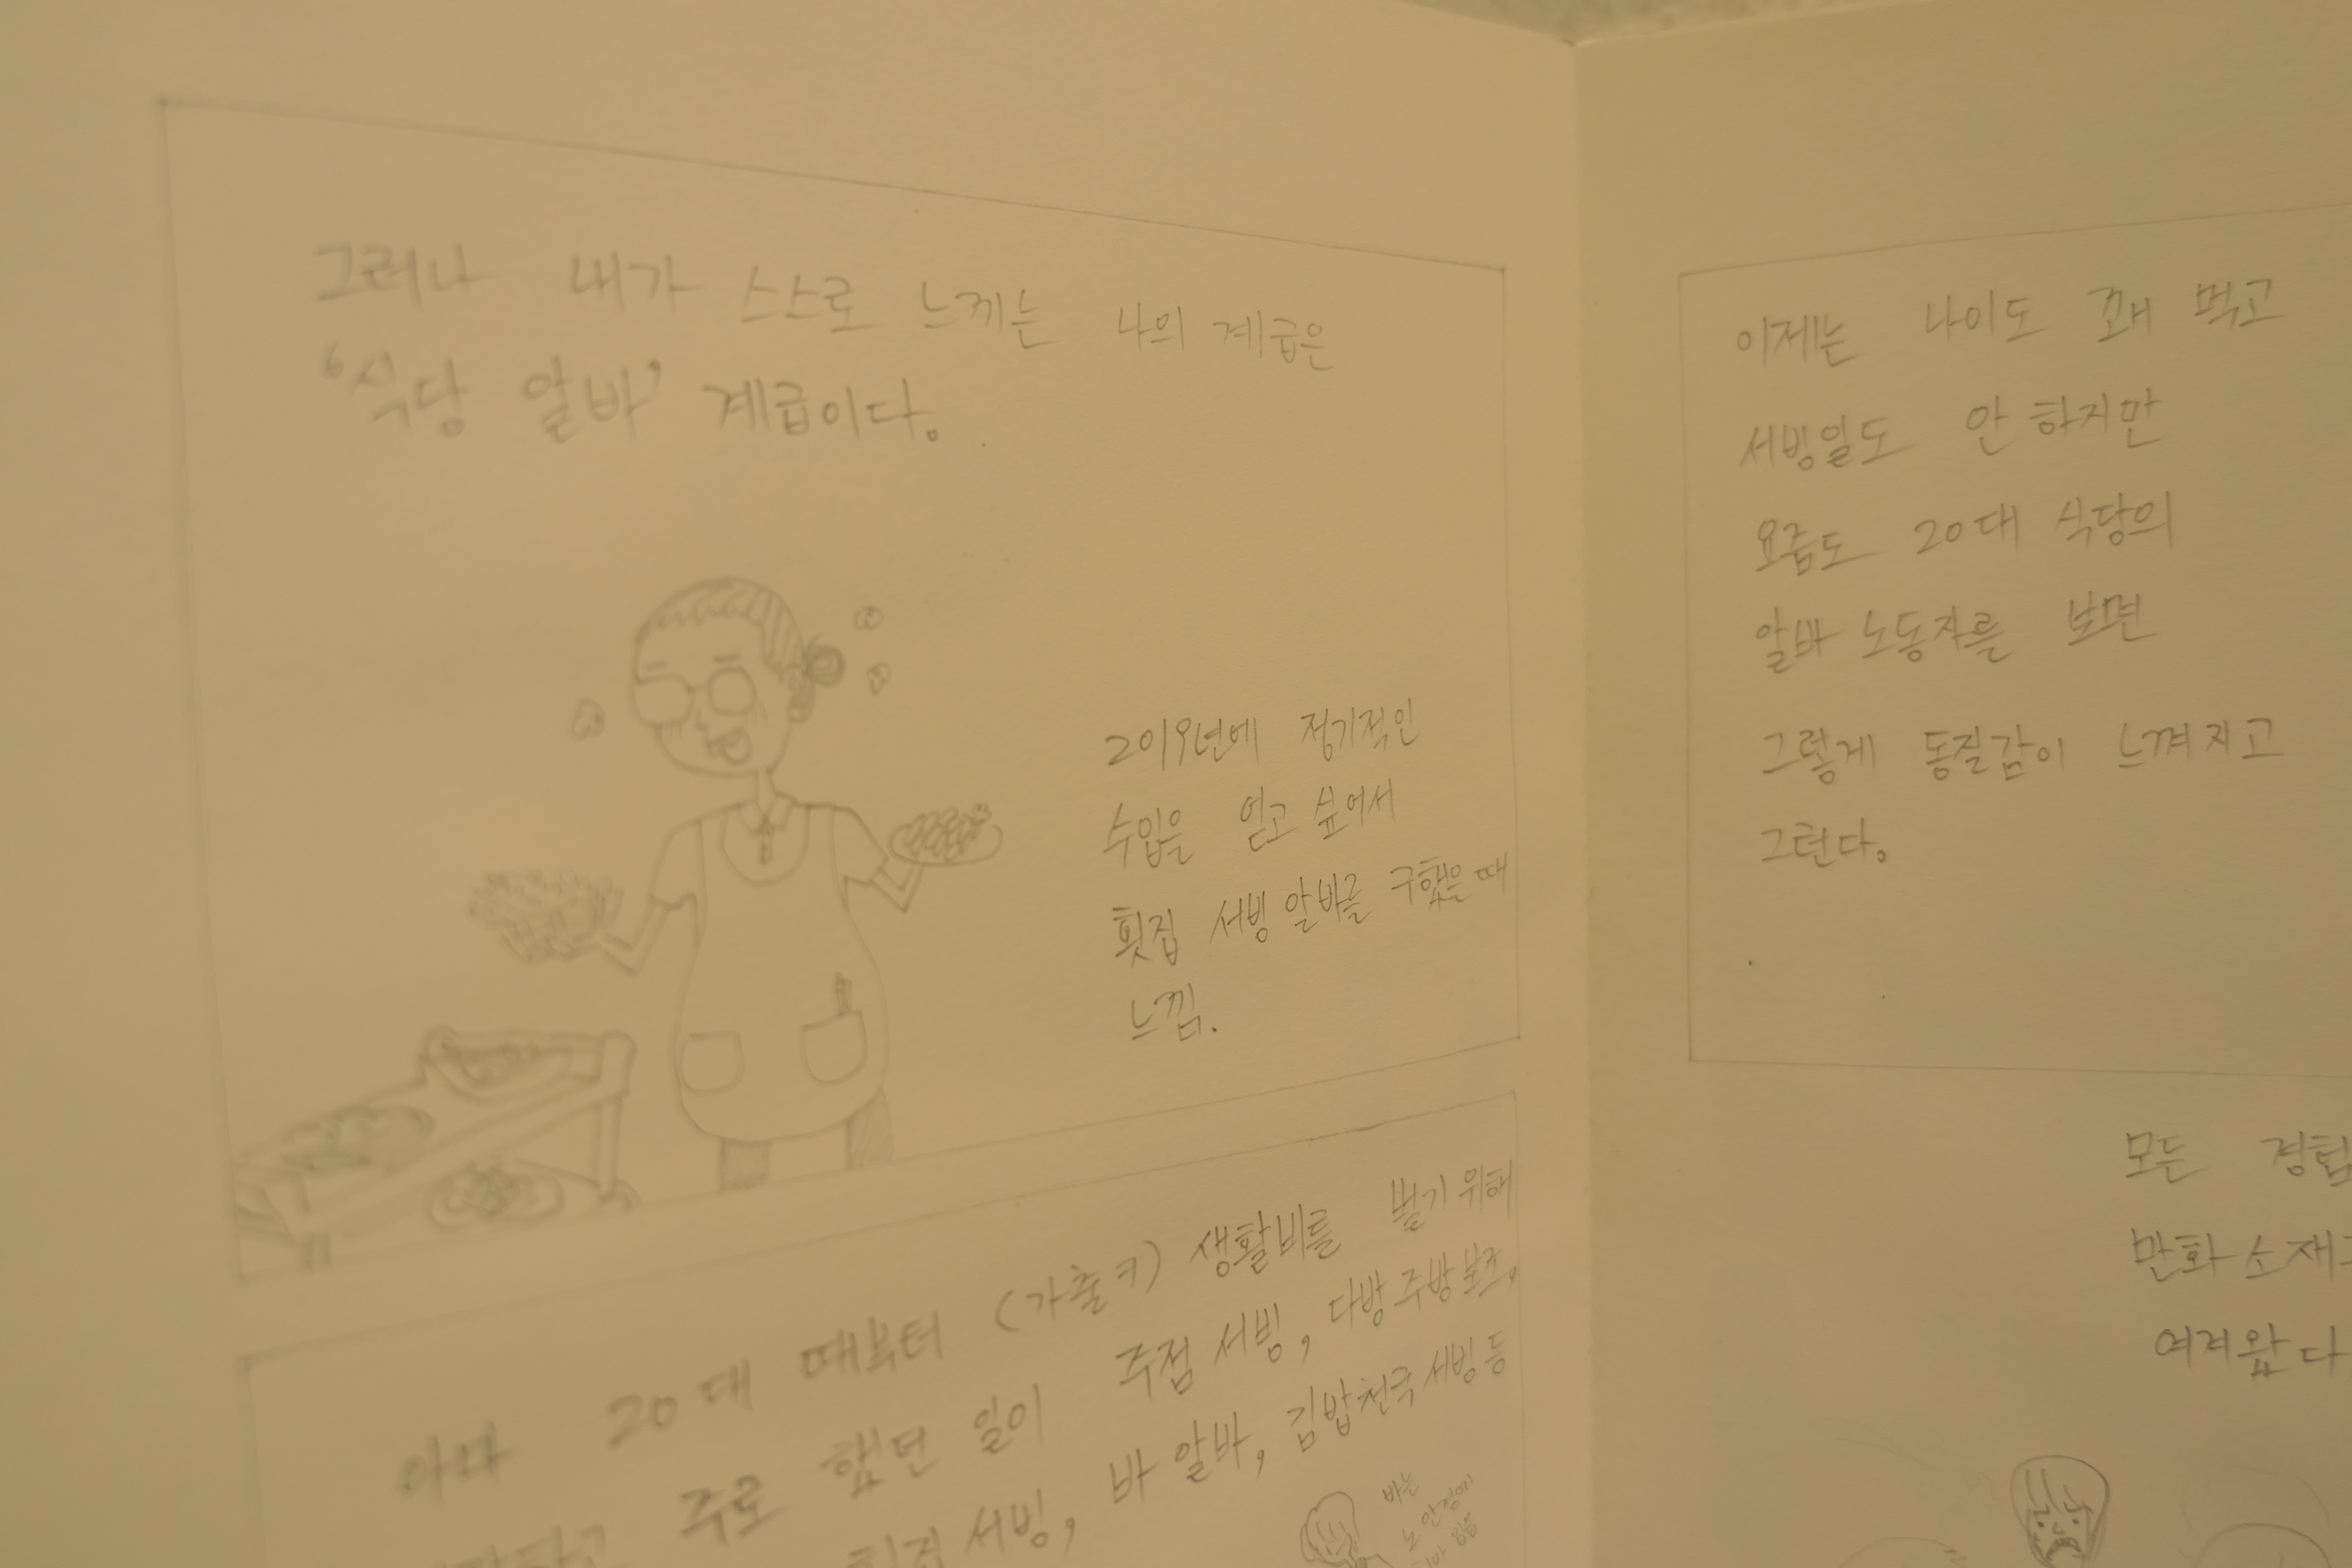 그러나 내가 스스로 느끼는 나의 계급은
‘식당 알바’ 계급이다.
2019년에 정기적인
수입을 얻고 싶어서
횟집 서빙 알바를 구했을 때
느낌.
아마 20대 때부터 (가출 키) 생활비를 벌기 위해
주로 했던 일이 주점 서빙, 다방 주방 보조,
횟집 서빙, 바 알바, 김밥천국 서빙 등
바는
노 안경에
이제는 나이도 꽤 먹고
서빙일도 안 하지만
요즘도 20대 식당의
알바 노동자를 보면
그렇게 동질감이 느껴지고
그런다.
모든
만화 소재
여겨왔다